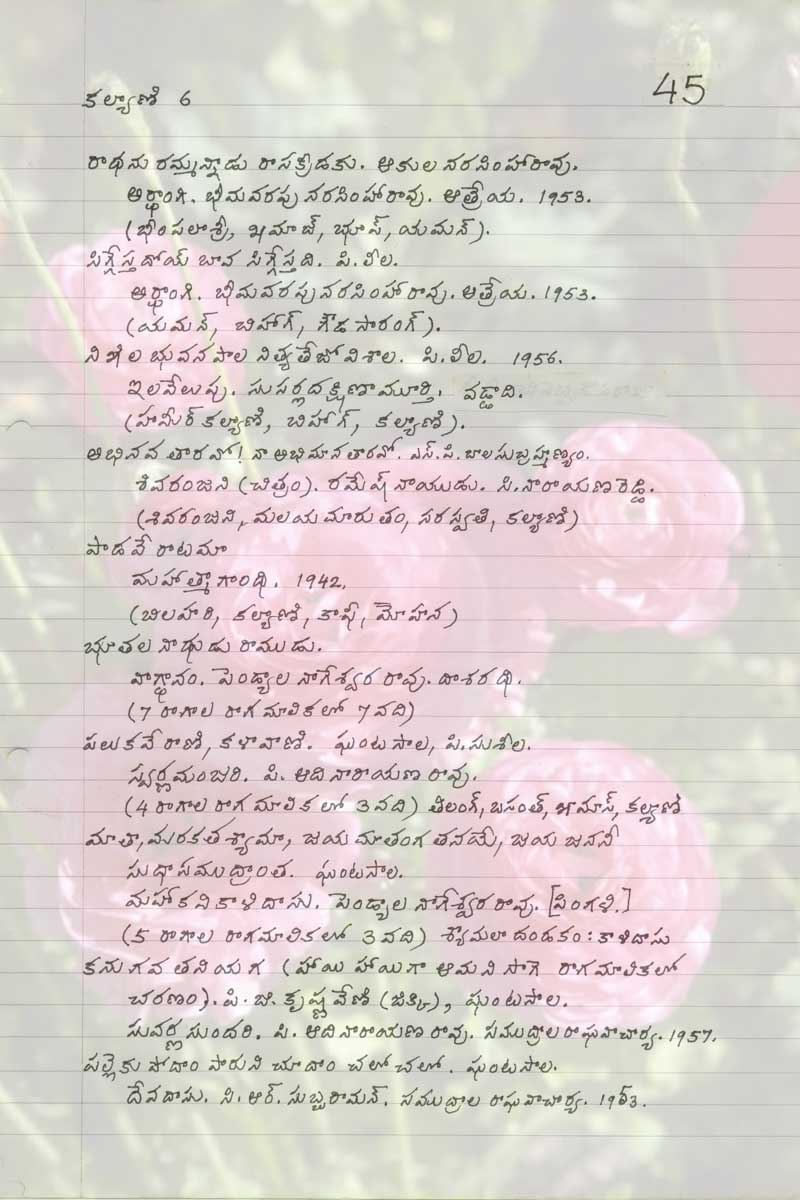 కల్యాణి 6
45
రాధను రమ్మన్నాడు రాసక్రీడకు. ఆకుల నరసింహారావు.
అర్ధాంగి. భీమవరపు నరసింహారావు. ఆత్రేయ. 1953.
(భీంపలాశ్రీ, ఖమాజ్, భూప్, యమన్).
సిగ్గేస్తదోయ్ బావ సిగ్గేస్తది. పి.లీల.
అర్ధాంగి. భీమవరపు నరసింహారావు. ఆత్రేయ. 1953.
(యమన్, బిహాగ్, గౌడ సారంగ్).
నిఖిల భువనపాల నిత్యతేజోవిశాల. పి.లీల. 1956.
ఇలవేలుపు. సుసర్లదక్షిణామూర్తి. వడ్డాది.
(హమీర్ కల్యాణి, బిహాగ్, కల్యాణి).
అభినవ తారవో! నా అభిమానతారవో. ఎస్.పి.బాలసుబ్రహ్మణ్యం.
శివరంజని (చిత్రం). రమేష్ నాయుడు. సి.నారాయణరెడ్డి.
(శివరంజని, మలయమారుతం, సరస్వతి, కల్యాణి)
పాడవే రాటమా
మహాత్మాగాంధి. 1942.
(బిలహరి, కల్యాణి, కాఫీ, మోహన)
భూతలనాథుడు రాముడు.
వాగ్దానం. పెండ్యాల నాగేశ్వరరావు. దాశరథి.
(7 రాగాల రాగమాలికలో 7వది)
పలుకవే రాణి, కళావాణి. ఘంటసాల, పి.సుశీల.
స్వర్ణమంజరి. పి. ఆదినారాయణరావు.
(4 రాగాల రాగమాలికలో 3వది) తిలంగ్, బసంత్, ఖమాస్, కల్యాణి
మాతా, మరకతశ్యామా, జయ మాతంగ తనయే, జయ జననీ
సుధాసముద్రాంత. ఘంటసాల.
మహాకవి కాళిదాసు. పెండ్యాల నాగేశ్వరరావు. [పింగళి.]
(5 రాగాల రాగమాలికలో 3వది) శ్యామలా దండకం: కాళిదాసు
కనుగవ తనియగ (హాయి హాయిగా ఆమని సాగె రాగమాలికలో
చరణం). పి.జి.కృష్ణవేణి (జిక్కి), ఘంటసాల.
సువర్ణసుందరి. పి. ఆదినారాయణరావు. సముద్రాల రాఘవాచార్య. 1957.
పల్లెకు పోదాం పారుని చూదాం చలో చలో. ఘంటసాల.
దేవదాసు. సి.ఆర్.సుబ్బరామన్. సముద్రాల రాఘవాచార్య. 1953.